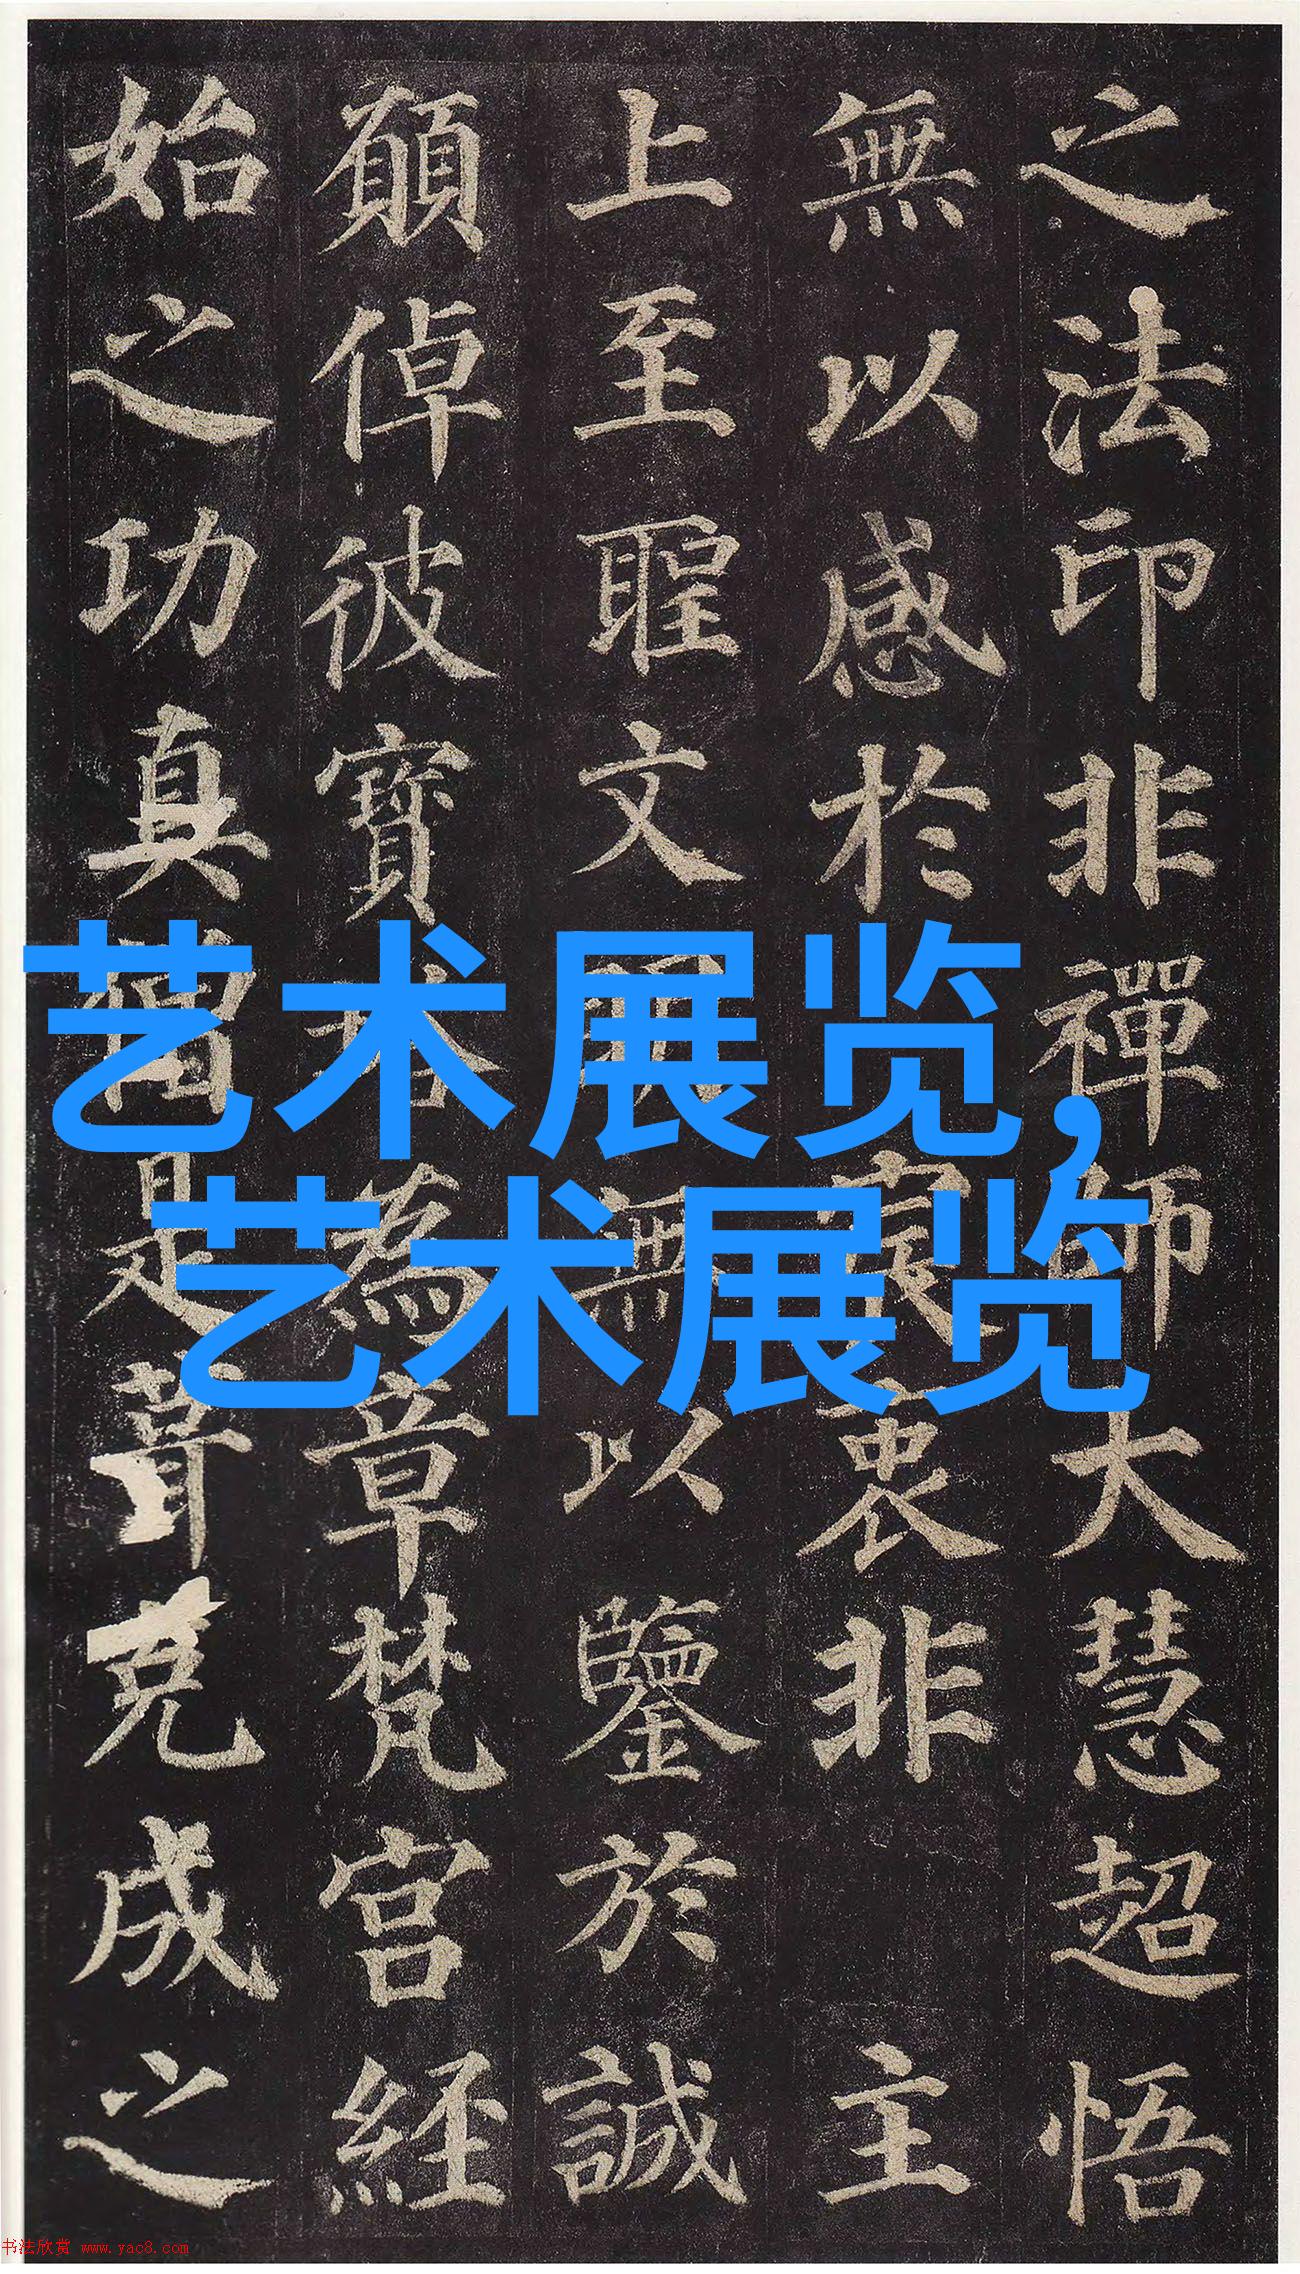 之法印非禪師大慧超悟
無以感於宸衷非主
上至聖文明無以鑒於誠
願倬彼寶塔為章梵宮経
始之功真僧是葺克成之
艺术展览,
艺术展览
书法欣赏 www.yac8.com